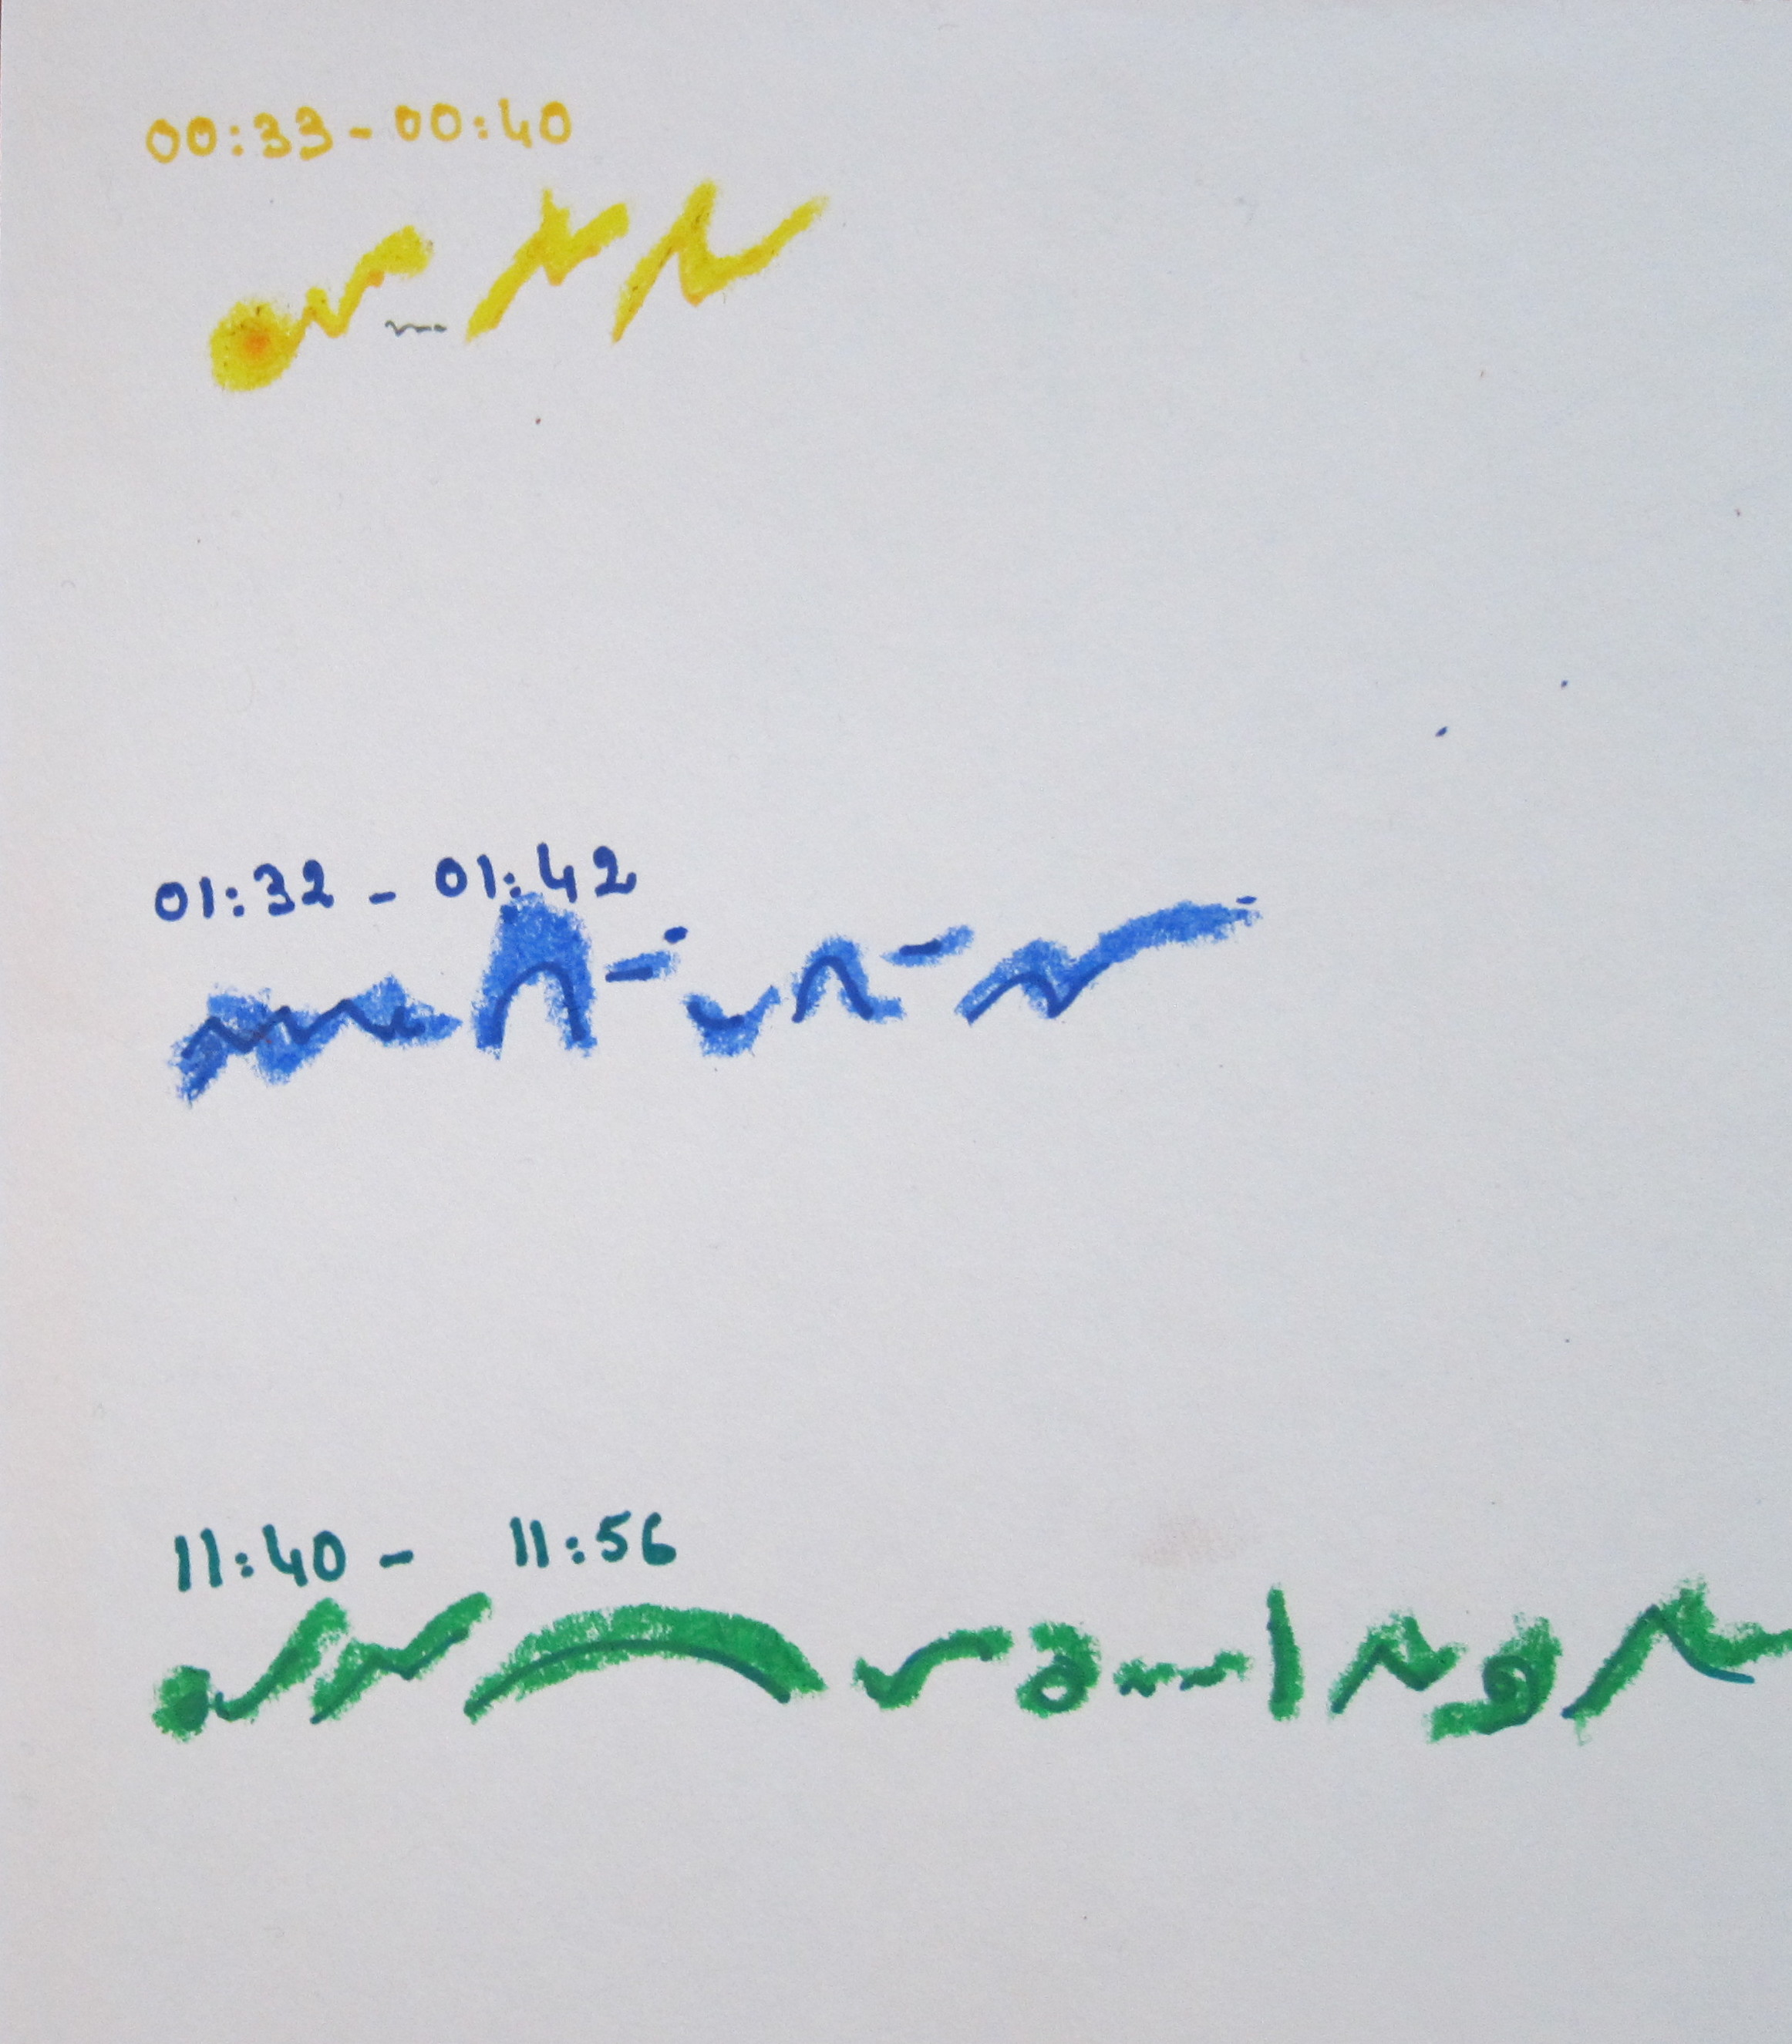 00:33 - 00:40
01:32 - 01:42
11:40 - 11:56